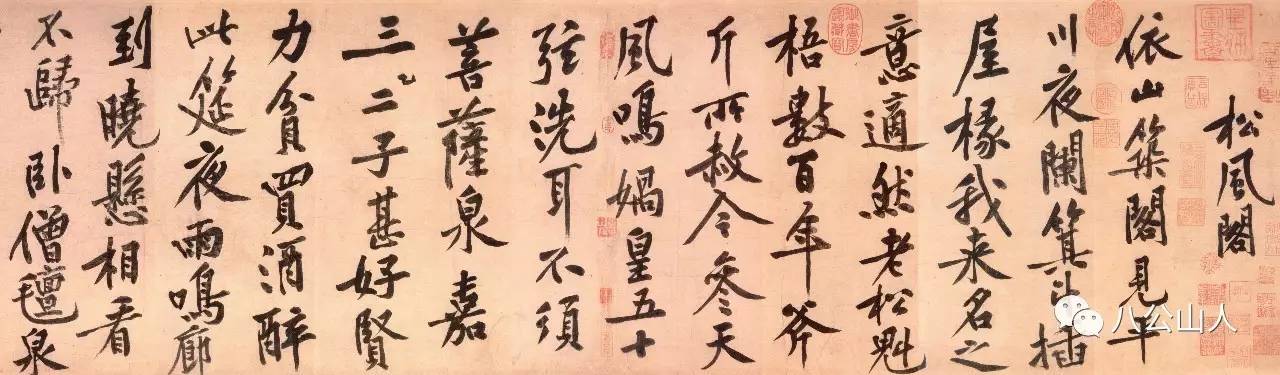 松風閣
依山築閣見平
川夜闌箕斗插
屋椽我来名之
意適然老松魁
梧數百年斧
斤所赦今參天
風鳴媧皇五十
弦洗耳不須
菩薩泉嘉
三二子甚好賢
力貧買酒醉
此筵夜雨鳴廊
到曉懸相看
不歸臥僧氈泉
八公山人